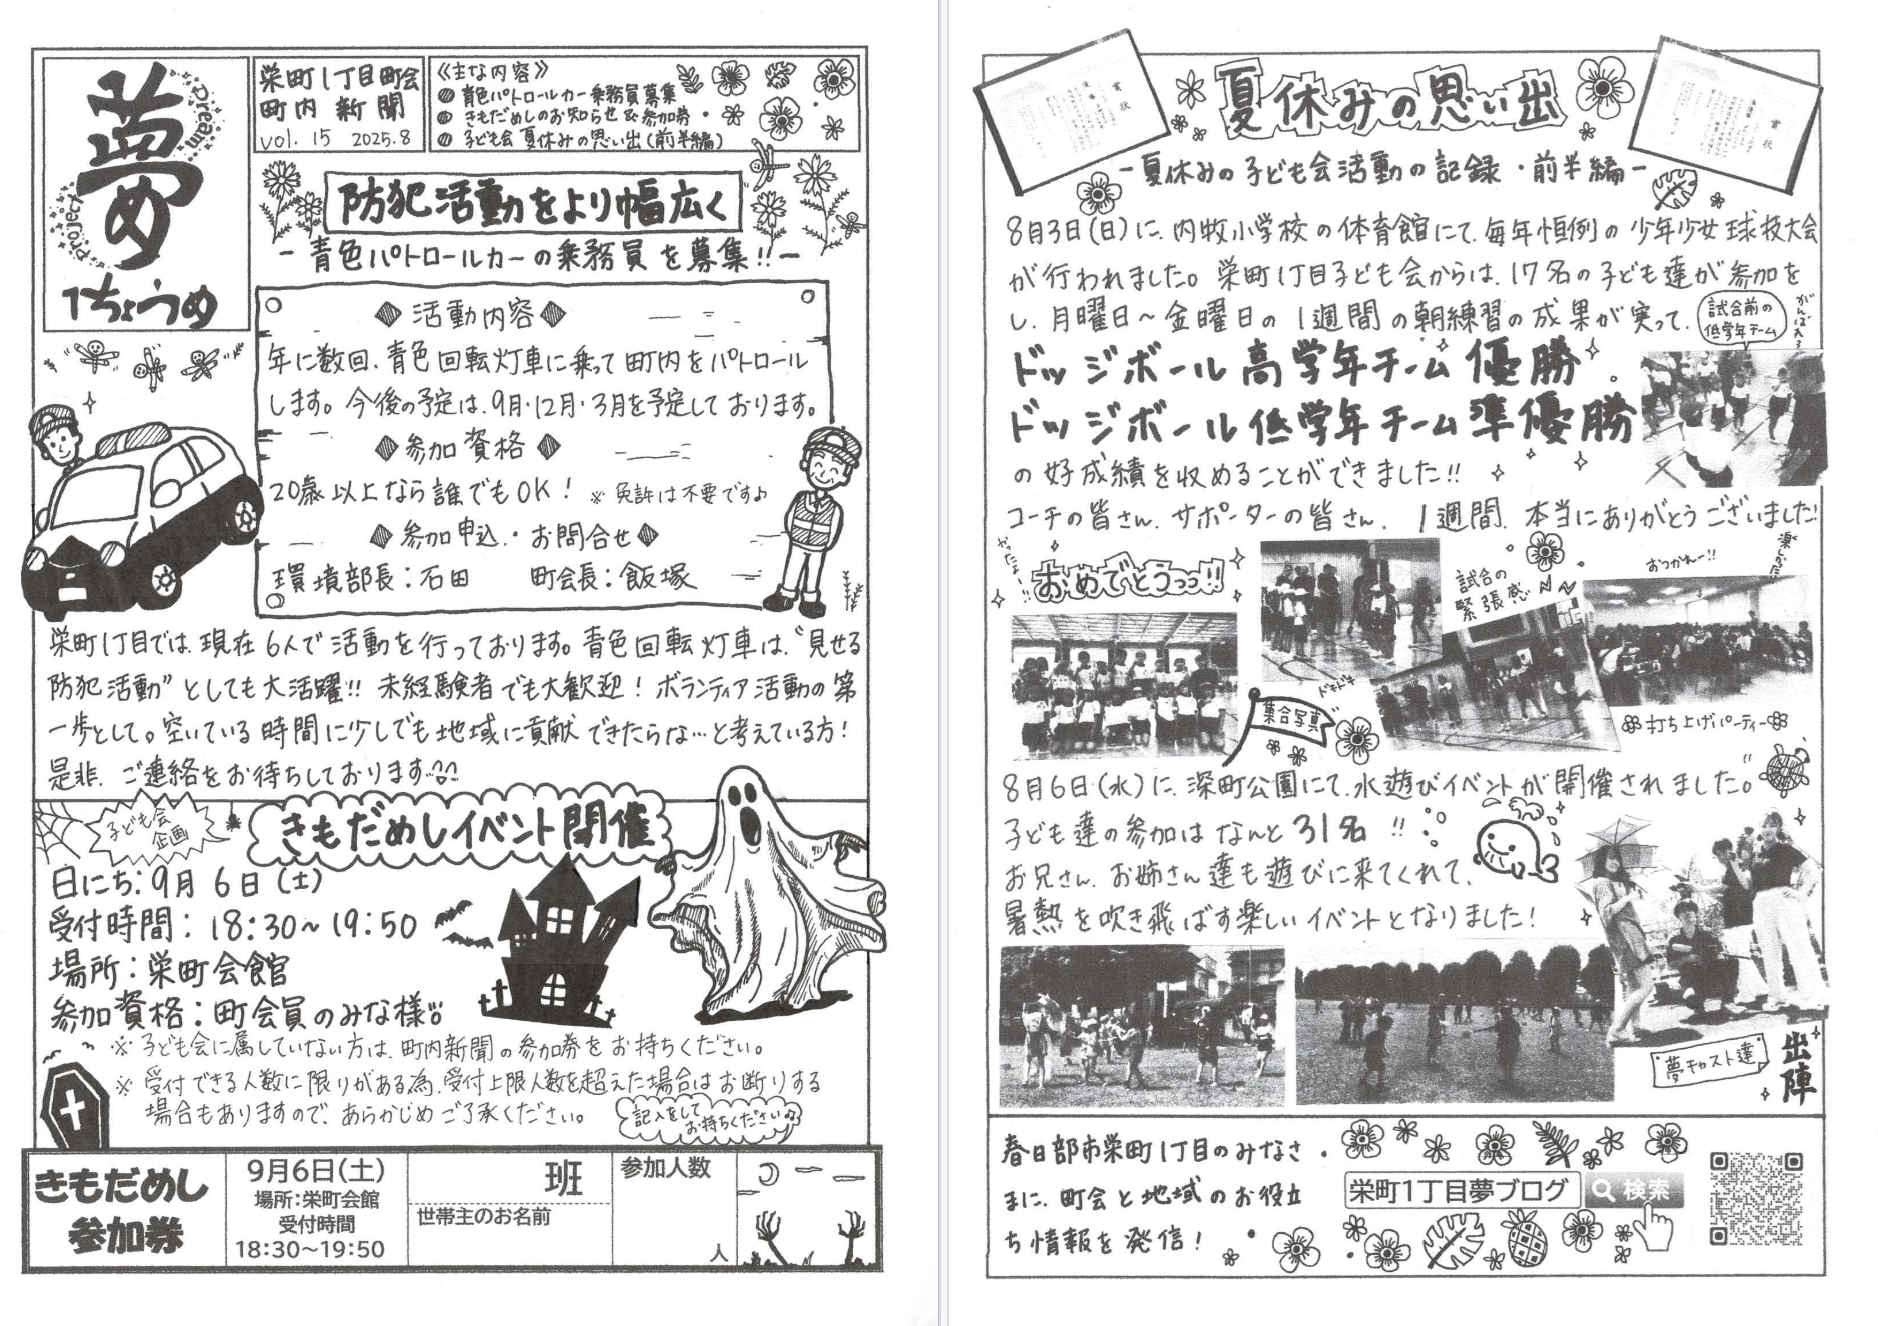 夢
Dream
Project
1ちょうめ
栄町1丁目町会
町内新聞
vol. 15 2025.8
《主な内容》
青色パトロールカー乗務員募集
きもだめしのお知らせ & 参加券
子ども会 夏休みの思い出(前半編)
防犯活動をより幅広く
－青色パトロールカーの乗務員を募集!!－
◆活動内容◆
年に数回、青色回転灯車に乗って町内をパトロール
します。今後の予定は、9月・12月・3月を予定しております。
◆参加資格◆
20歳以上なら誰でもOK! ※免許は不要です♪
◆参加申込・お問合せ◆
環境部長:石田 町会長:飯塚
栄町1丁目では、現在6人で活動を行っております。青色回転灯車は、“見せる
防犯活動”としても大活躍!! 未経験者でも大歓迎! ボランティア活動の第
一歩として。空いている時間に少しでも地域に貢献できたらな…と考えている方!
是非、ご連絡をお待ちしております
子ども会
企画
きもだめしイベント開催
日にち:9月6日(土)
受付時間:18:30~19:50
場所:栄町会館
参加資格:町会員のみな様
※子ども会に属していない方は、町内新聞の参加券をお持ちください。
※受付できる人数に限りがある為、受付上限人数を超えた場合はお断りする
場合もありますので、あらかじめご了承ください。
記入をして
お持ちください♪
きもだめし
参加券
9月6日(土)
場所:栄町会館
受付時間
18:30~19:50
班
世帯主のお名前
参加人数
人
賞状
夏休みの思い出
賞状
－夏休みの子ども会活動の記録・前半編－
8月3日(日)に、内牧小学校の体育館にて、毎年恒例の少年少女球技大会
が行われました。栄町1丁目子ども会からは、17名の子ども達が参加を
し、月曜日~金曜日の1週間の朝練習の成果が実って、
試合前の
低学年チーム
がんばえ~
ドッジボール高学年チーム優勝。
ドッジボール低学年チーム準優勝
の好成績を収めることができました!!
コーチの皆さん、サポーターの皆さん、1週間、本当にありがとうございました!
やったー!!
おめでとうっっ!!
試合の
緊張感
おつかれー!!
集合写真
ドキドキ
打ち上げパーティー
8月6日(水)に、深町公園にて、水遊びイベントが開催されました。
子ども達の参加はなんと31名!!
お兄さん、お姉さん達も遊びに来てくれて、
暑熱を吹き飛ばす楽しいイベントとなりました!
夢キャスト達
出陣
春日部市栄町1丁目のみなさ
まに、町会と地域のお役立
ち情報を発信!
栄町1丁目夢ブログ 検索